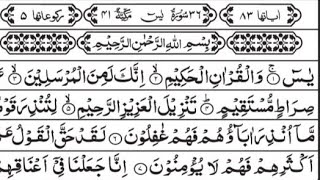 اٰیاتها ۸۳ ۳۶ سُوْرَةُ يٰسٓ مَكِّيَّةٌ ۴۱ ركوعاتها ۵
بِسْمِ اللّٰهِ الرَّحْمٰنِ الرَّحِيْمِ
يٰسٓ ۚ﴿۱﴾ وَالْقُرْاٰنِ الْحَكِيْمِ ۙ﴿۲﴾ اِنَّكَ لَمِنَ الْمُرْسَلِيْنَ ۙ﴿۳﴾
صِرَاطٍ مُّسْتَقِيْمٍ ؕ﴿۴﴾ تَنْزِيْلَ الْعَزِيْزِ الرَّحِيْمِ ۙ﴿۵﴾ لِتُنْذِرَ
مَّاۤ اُنْذِرَ اٰبَآؤُهُمْ فَهُمْ غٰفِلُوْنَ ﴿۶﴾ لَقَدْ حَقَّ الْقَوْلُ
اَكْثَرِهِمْ فَهُمْ لَا يُؤْمِنُوْنَ ﴿۷﴾ اِنَّا جَعَلْنَا فِيْۤ اَعْنَاقِهِمْ